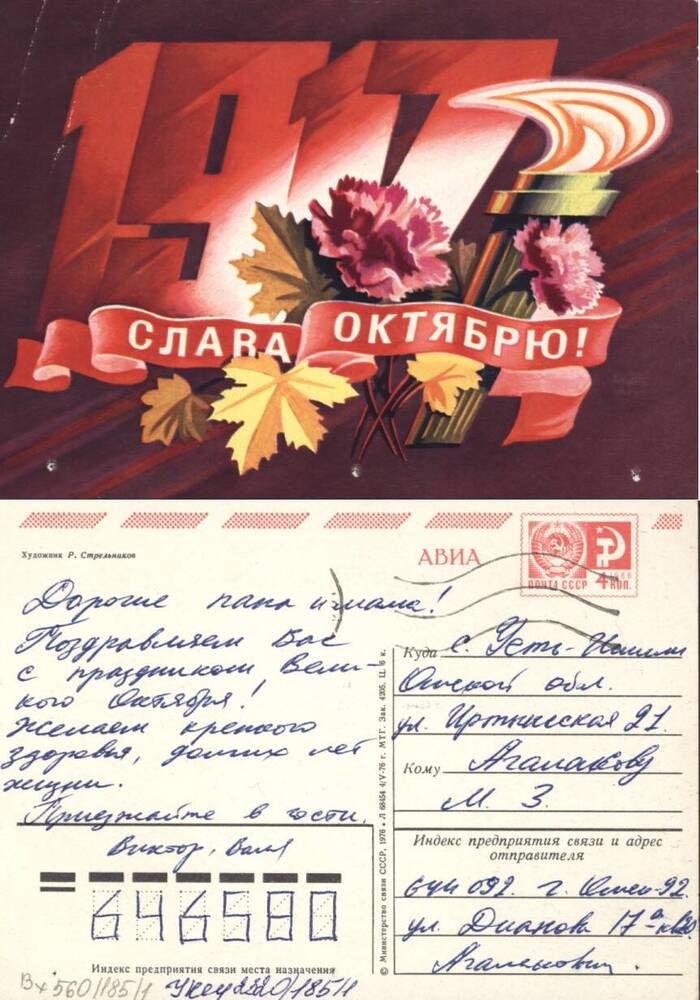 1917
СЛАВА ОКТЯБРЮ!
Художник Р. Стрельников
АВИА
ПОЧТА СССР
1966
4 КОП.
Дорогие папа и мама!
Поздравляем Вас
с праздником Вели-
кого Октября!
Желаем крепкого
здоровья, долгих лет
жизни.
Приезжайте в гости.
Виктор, Валя
© Министерство связи СССР, 1976 • Л 68454 4/V-76 г. МТГ. Зак. 4395. Ц. 6 к.
Куда с. Усть-Ишим
Омской обл.
ул. Иртышская 21.
Кому Агалакову
М. З.
Индекс предприятия связи и адрес
отправителя
644092. г. Омск-92.
ул. Дианова 17а-
646580
Индекс предприятия связи места назначения
Вх560/185/1